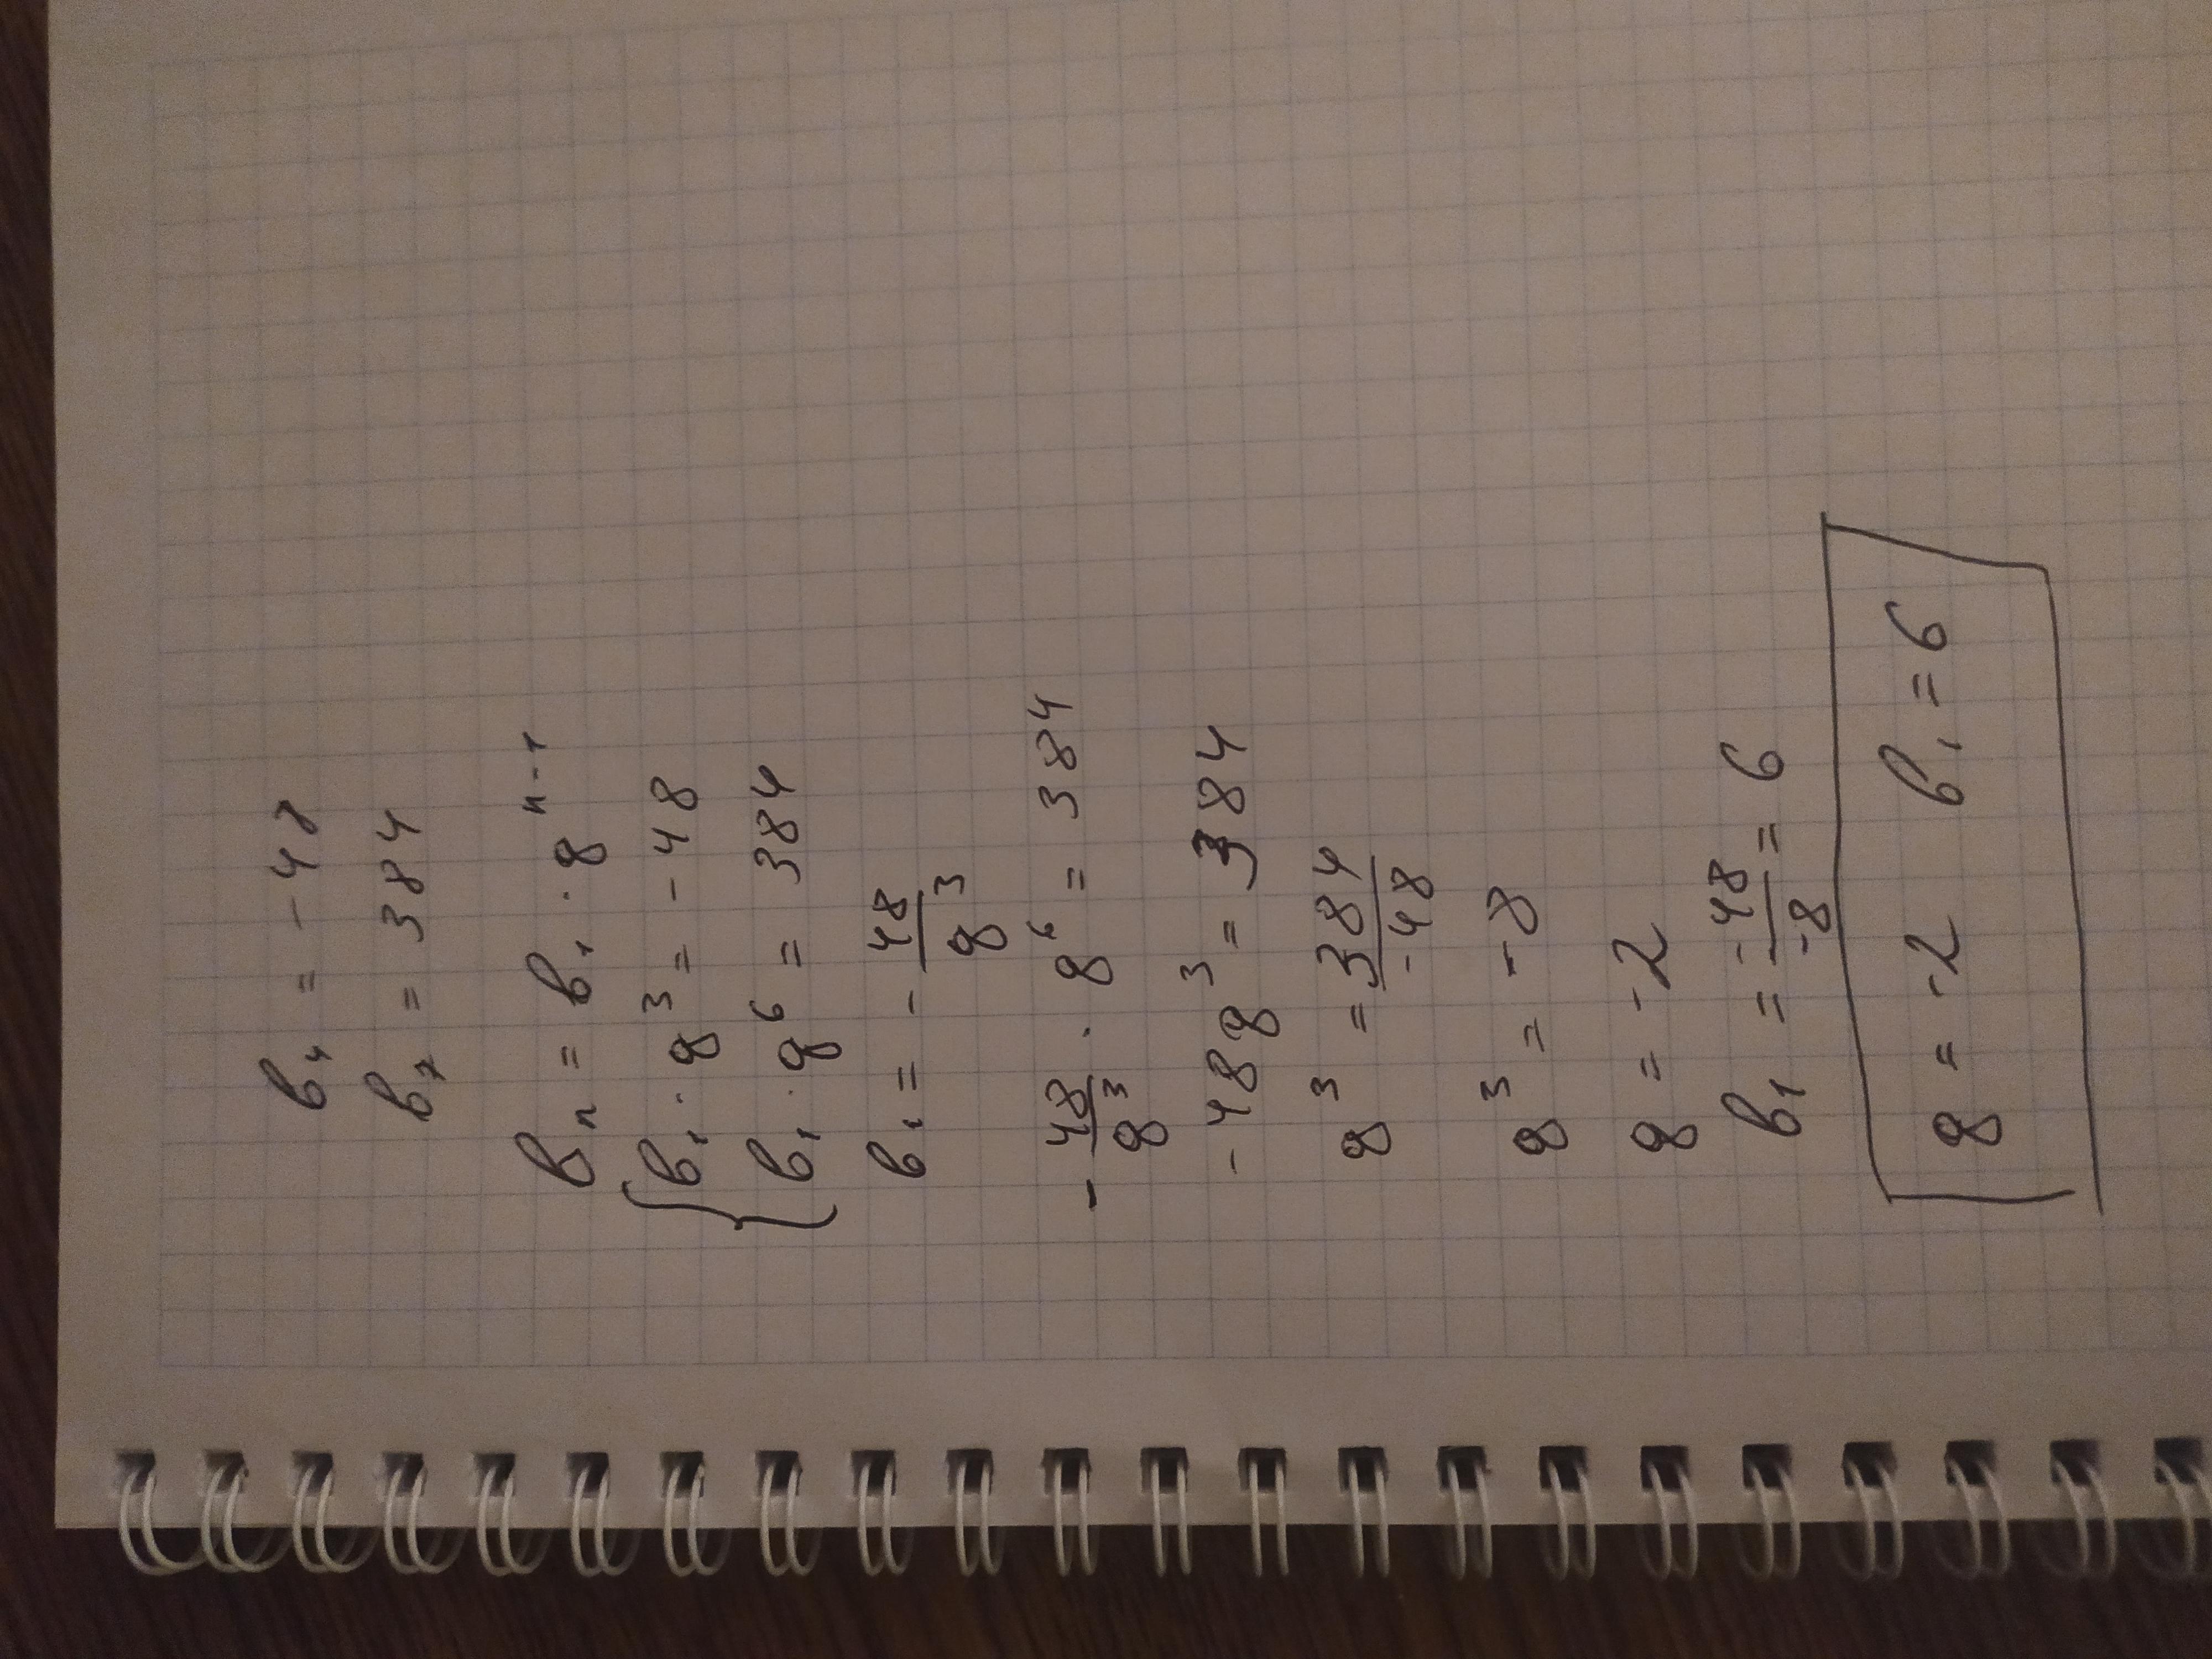 b₄ = -48
b₇ = 384
bₙ = b₁ · qⁿ⁻¹
{ b₁ · q³ = -48
b₁ · q⁶ = 384
b₁ = - 48/q³
- 48/q³ · q⁶ = 384
- 48q³ = 384
q³ = 384/-48
q³ = -8
q = -2
b₁ = -48/-8 = 6
q = -2 b₁ = 6